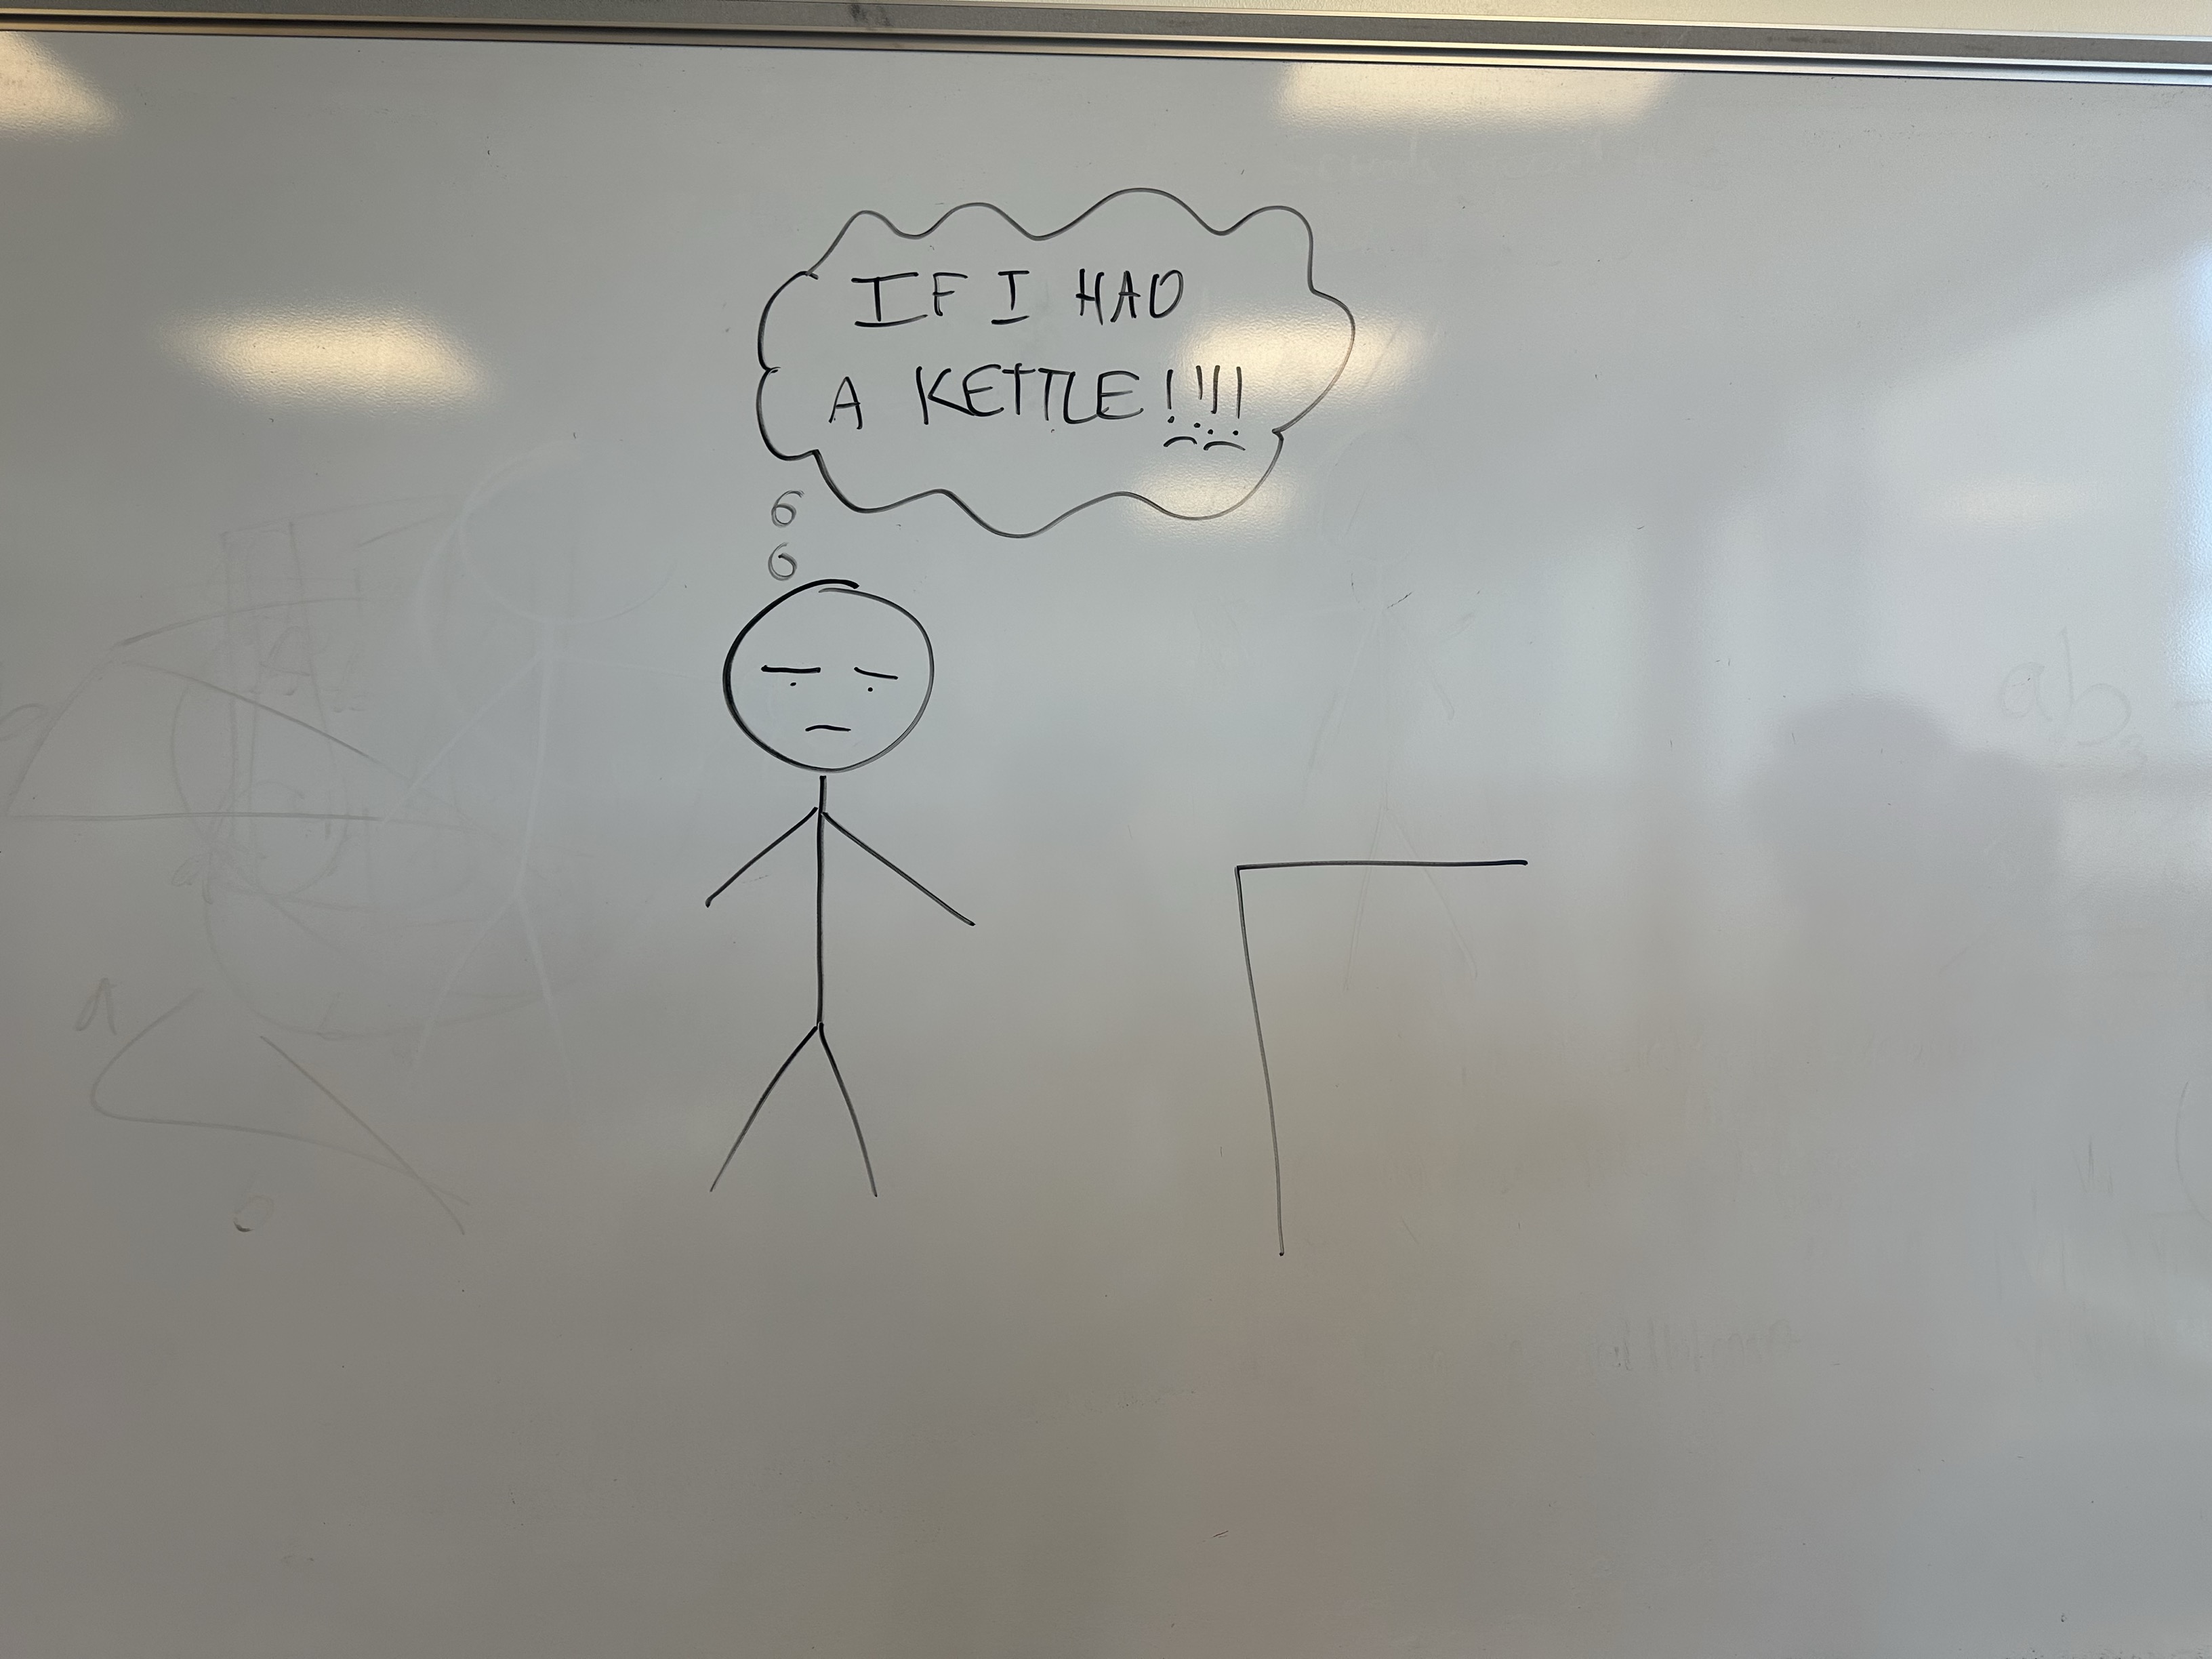 IF I HAD
A KETTLE!!!!